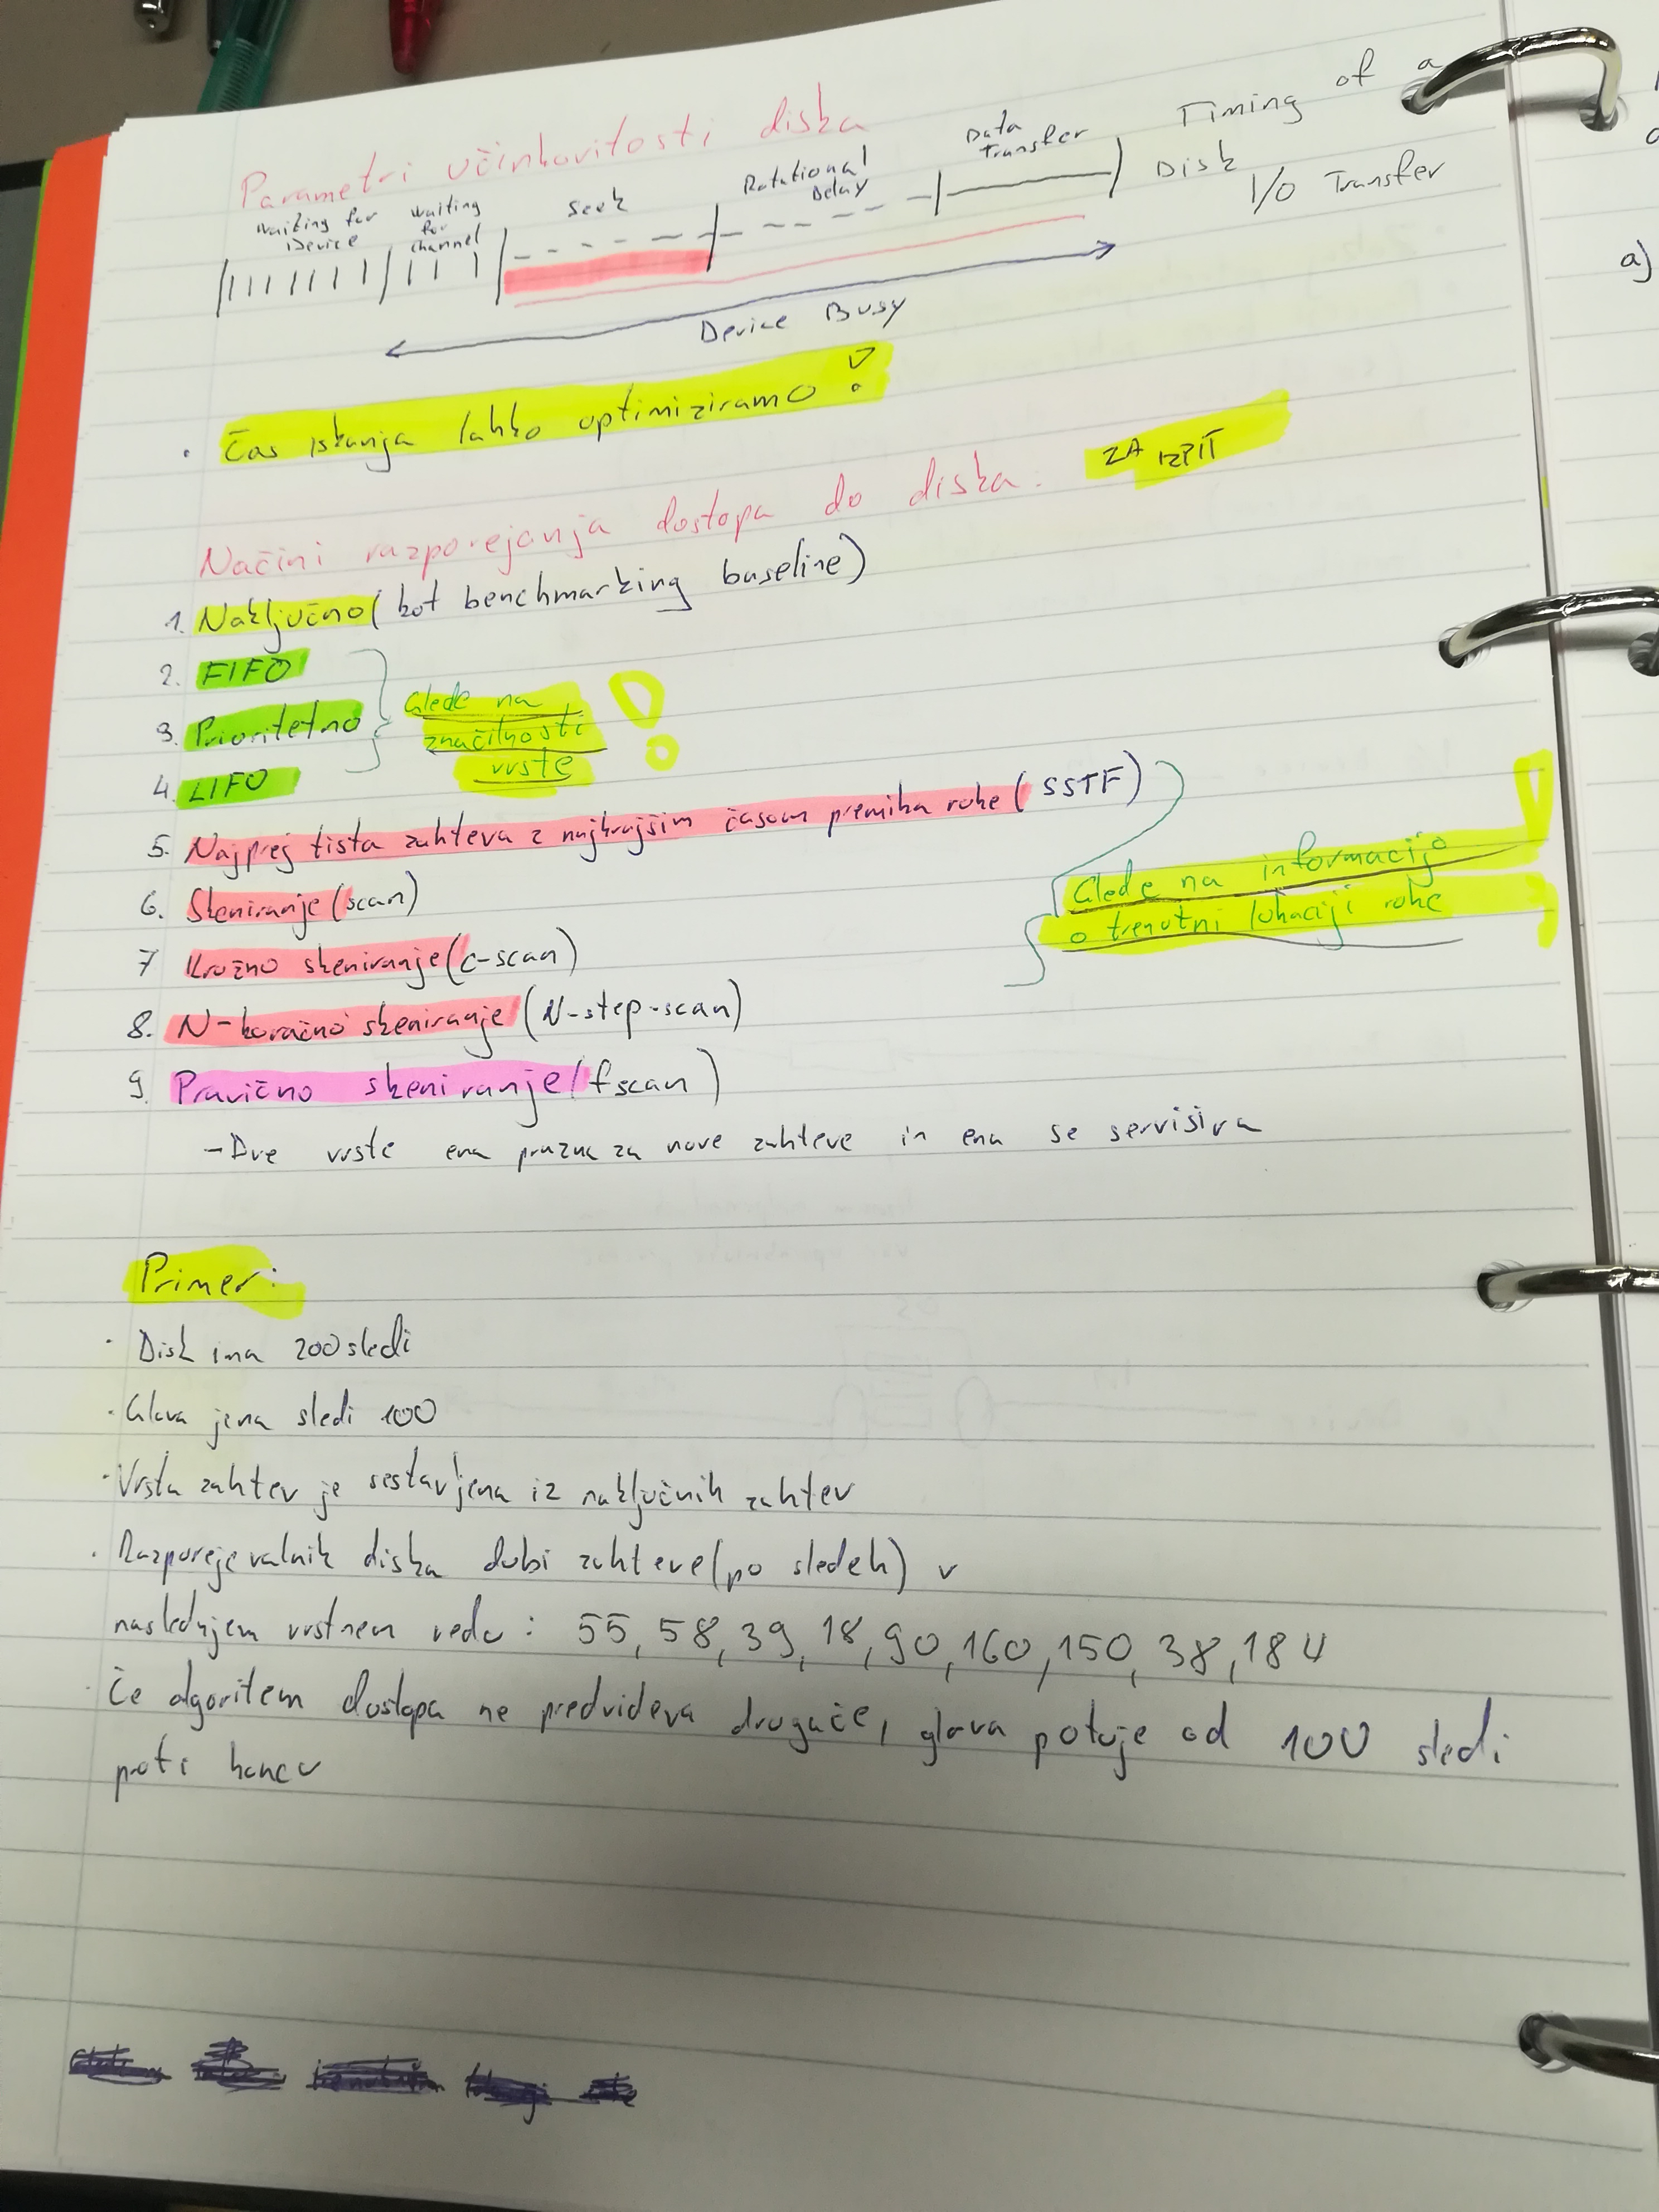 Parametri učinkovitosti diska
Waiting for Device
Waiting for channel
Seek
Rotational Delay
Data Transfer
Timing of a
Disk I/O Transfer
Device Busy
· Čas iskanja lahko optimiziramo!
Načini razporejanja dostopa do diska: ZA IZPIT
1. Naključno (kot benchmarking baseline)
2. FIFO
3. Prioritetno
4. LIFO
Glede na
značilnosti
vrste !
5. Najprej tista zahteva z najkrajšim časom premika roke (SSTF)
6. Skeniranje (scan)
7 Krožno skeniranje (c-scan)
8. N-koračno skeniranje (N-step-scan)
Glede na informacijo
o trenutni lokaciji roke !
9. Pravično skeniranje (fscan)
- Dve vrste ena prazna za nove zahteve in ena se servisira
Primer:
· Disk ima 200 sledi
· Glava je na sledi 100
· Vrsta zahtev je sestavljena iz naključnih zahtev
· Razporejevalnik diska dobi zahteve (po sledeh) v
naslednjem vrstnem redu : 55, 58, 39, 18, 90, 160, 150, 38, 184
· Če algoritem dostopa ne predvideva drugače, glava potuje od 100 sledi
proti koncu
a)